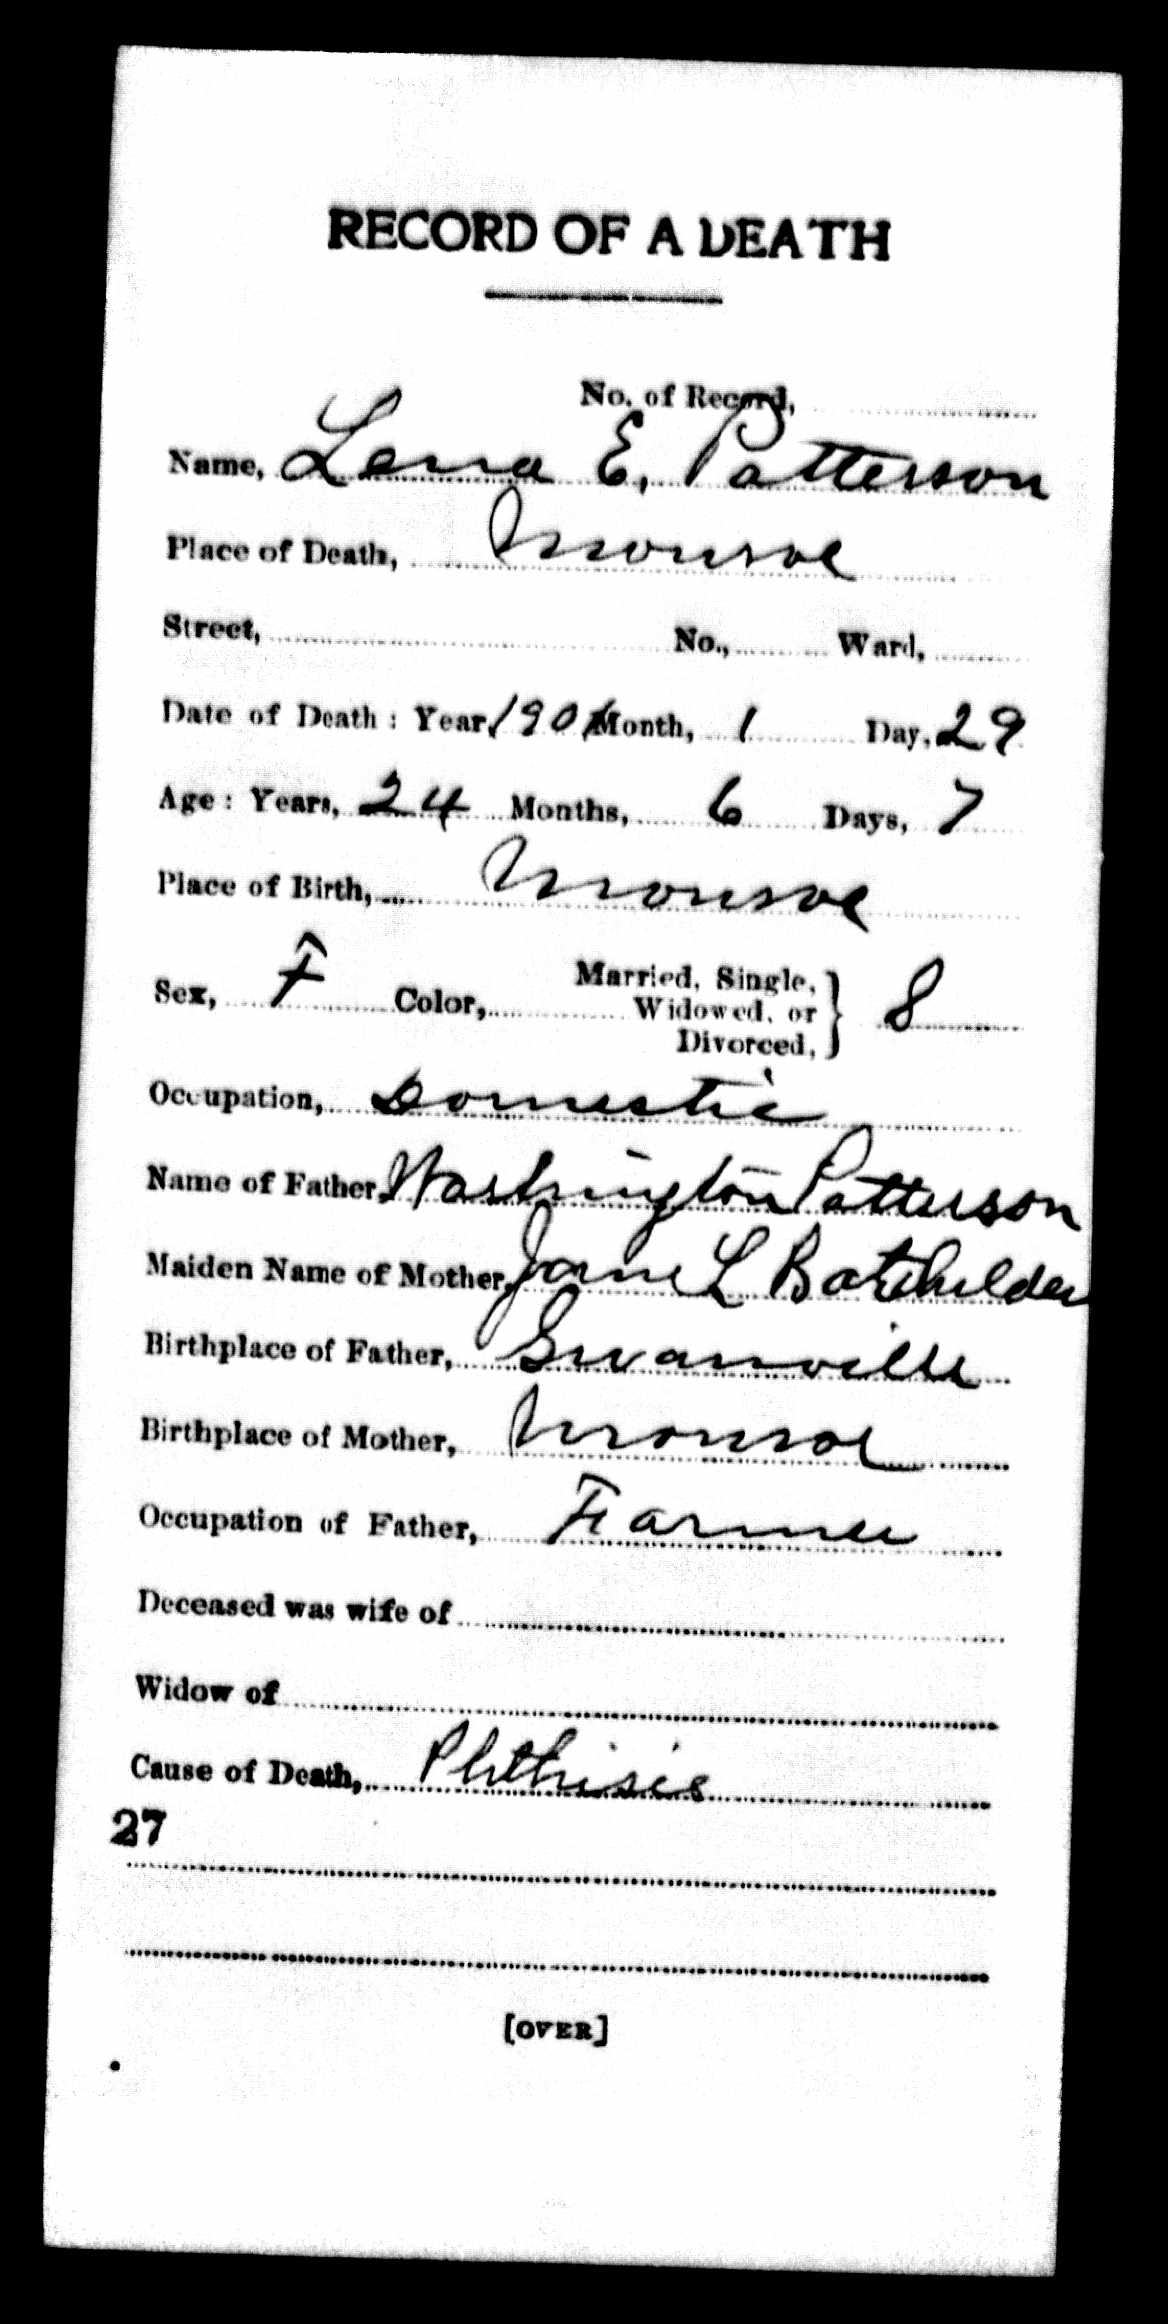 RECORD OF A DEATH
No. of Record,
Name, Lena E. Patterson
Place of Death, Monroe
Street, No., Ward,
Date of Death: Year, 1901 Month, 1 Day, 29
Age: Years, 24 Months, 6 Days, 7
Place of Birth, Monroe
Sex, F Color, Married, Single, Widowed, or Divorced, } S
Occupation, Domestic
Name of Father, Washington Patterson
Maiden Name of Mother, Jane L Batchelder
Birthplace of Father, Swanville
Birthplace of Mother, Monroe
Occupation of Father, Farmer
Deceased was wife of
Widow of
Cause of Death, Phthisis
27
[OVER]